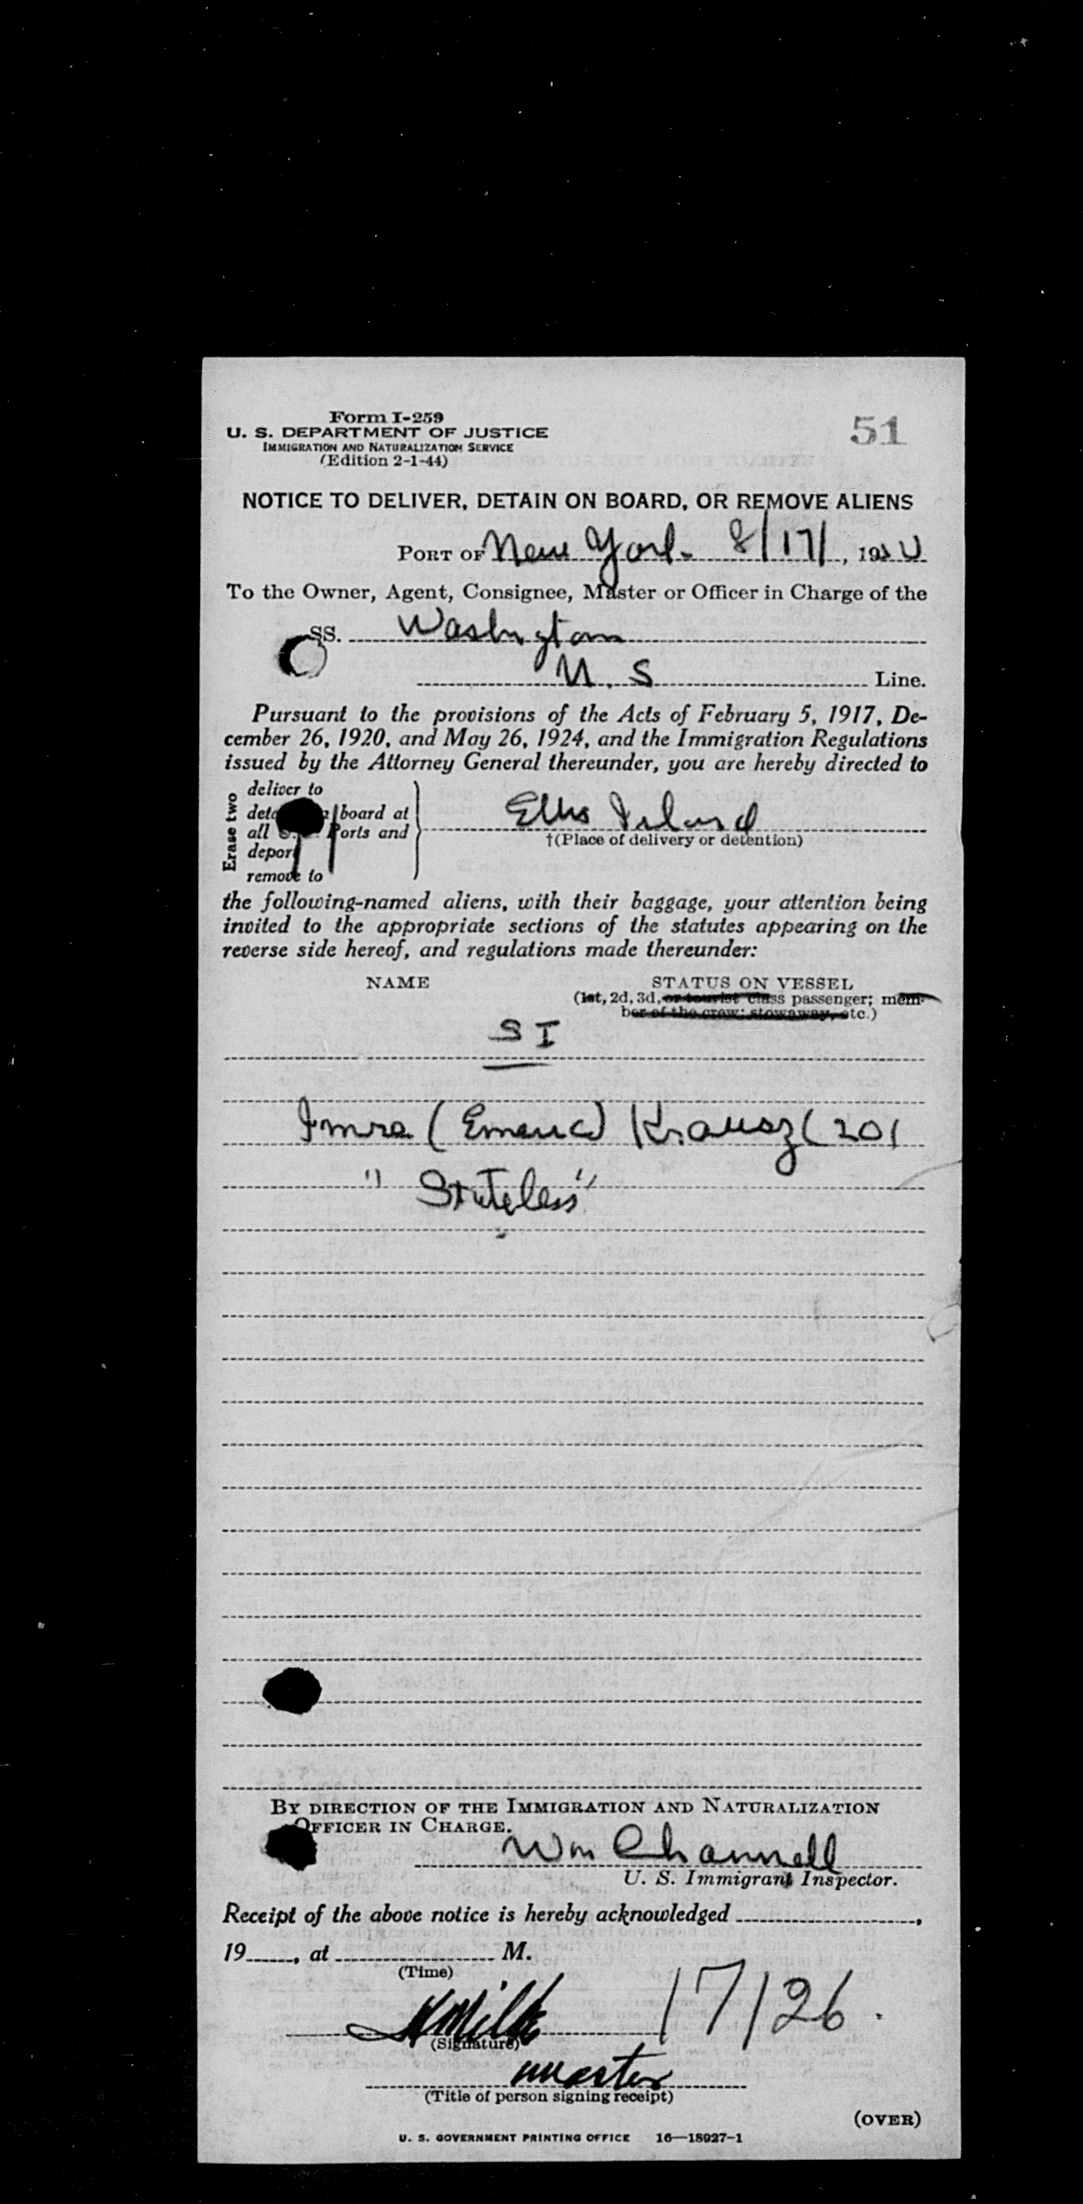 Form I-259
51
U. S. DEPARTMENT OF JUSTICE
IMMIGRATION AND NATURALIZATION SERVICE
(Edition 2-1-44)
NOTICE TO DELIVER, DETAIN ON BOARD, OR REMOVE ALIENS
PORT OF New York 8/17/, 19
To the Owner, Agent, Consignee, Master or Officer in Charge of the
SS. Washington
U. S Line.
Pursuant to the provisions of the Acts of February 5, 1917, De-
cember 26, 1920, and May 26, 1924, and the Immigration Regulations
issued by the Attorney General thereunder, you are hereby directed to
Erase two
deliver to
board at
all Ports and
depor
remove to
Ellis Island
†(Place of delivery or detention)
the following-named aliens, with their baggage, your attention being
invited to the appropriate sections of the statutes appearing on the
reverse side hereof, and regulations made thereunder:
NAME STATUS ON VESSEL
(1st, 2d, 3d, or tourist class passenger; mem-
ber of the crew; stowaway, etc.)
S I
Imre (Emeric) Krausz (20)
"Stateless"
BY DIRECTION OF THE IMMIGRATION AND NATURALIZATION
OFFICER IN CHARGE.
Wm Channell
U. S. Immigrant Inspector.
Receipt of the above notice is hereby acknowledged ,
19 , at M.
(Time)
17/26
(Signature)
master
(Title of person signing receipt)
(OVER)
U. S. GOVERNMENT PRINTING OFFICE 16—18927-1